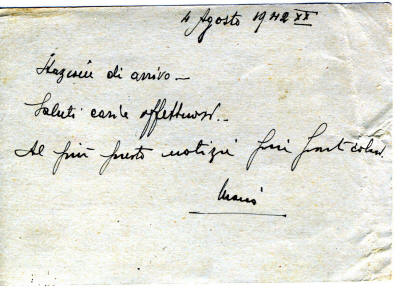 4 Agosto 1942 XX
Stazione di arrivo –
Saluti cari e affettuosi..
Al più presto notizie più particolari.
Mario